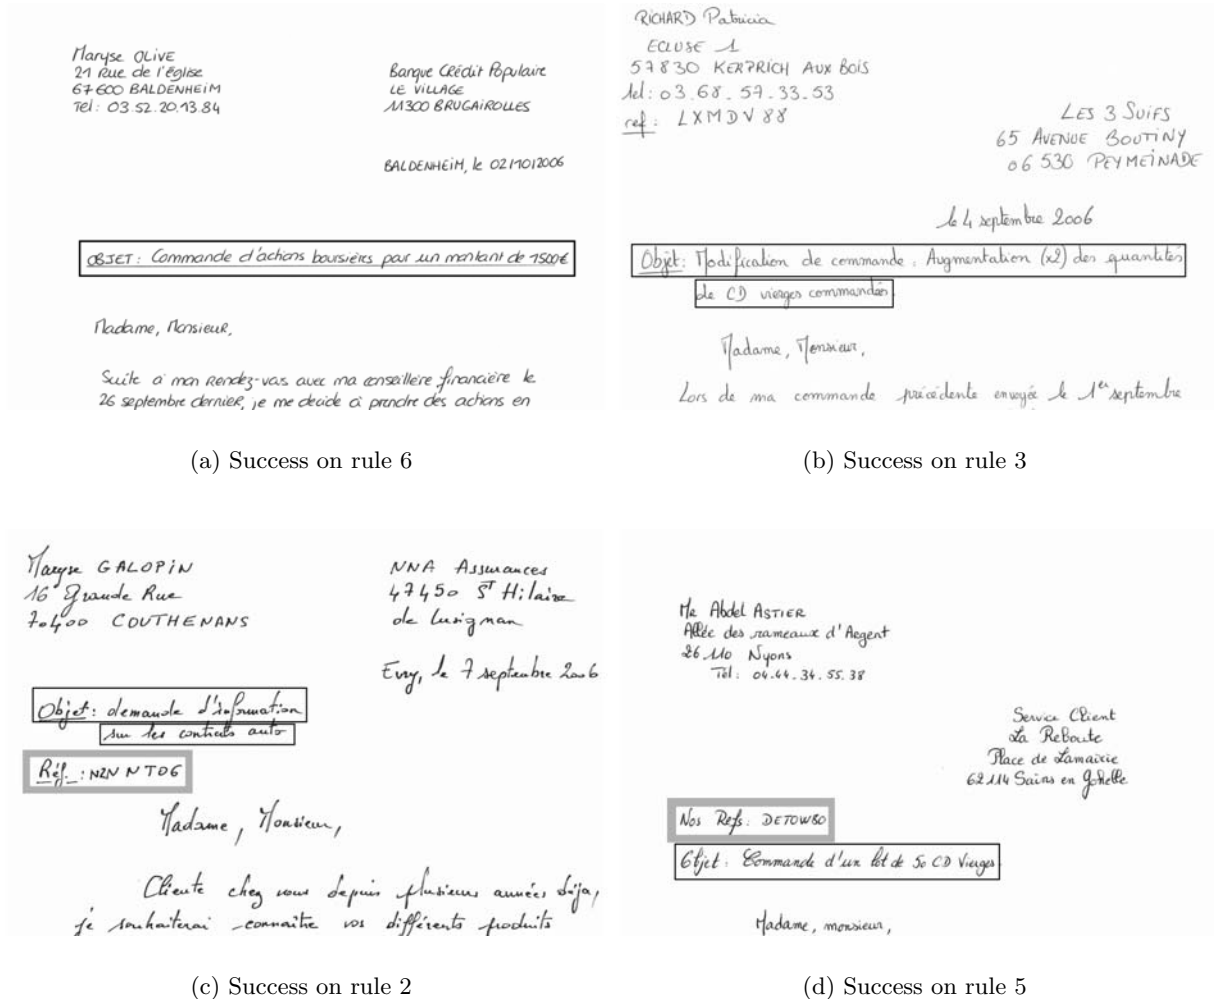 Maryse OLIVE
21 Rue de l'église
67600 BALDENHEIM
Tel : 03.52.20.13.84
Banque Crédit Populaire
LE VILLAGE
11300 BRUGAIROLLES
BALDENHEIM, le 02/10/2006
OBJET : Commande d'actions boursières pour un montant de 1500€
Madame, Monsieur,
Suite à mon rendez-vous avec ma conseillère financière le
26 septembre dernier, je me décide à prendre des actions en
(a) Success on rule 6
RICHARD Patricia
ECLUSE 1
57830 KERPRICH AUX BOIS
tel : 03.68.57.33.53
ref : LXMDV88
LES 3 SUIFS
65 AVENUE BOUTINY
06 530 PEYMEINADE
le 4 septembre 2006
Objet : Modification de commande : Augmentation (x2) des quantités
de CD vierges commandés.
Madame, Monsieur,
Lors de ma commande précédente envoyée le 1er septembre
(b) Success on rule 3
Maryse GALOPIN
16 Grande Rue
70400 COUTHENANS
NNA Assurances
47450 ST Hilaire
de Lusignan
Evry, le 7 septembre 2006
Objet : demande d'information
sur les contrats auto
Réf. : NZNNTDG
Madame, Monsieur,
Cliente chez vous depuis plusieurs années déja,
je souhaiterai connaître vos différents produits
(c) Success on rule 2
Mr Abdel ASTIER
Allée des rameaux d'Argent
26110 Nyons
Tél : 04.44.34.55.38
Service Client
La Reboute
Place de Lamairie
62114 Sains en Gohelle
Nos Refs : DETOW80
Objet : Commande d'un lot de 50 CD Vierges
Madame, monsieur,
(d) Success on rule 5